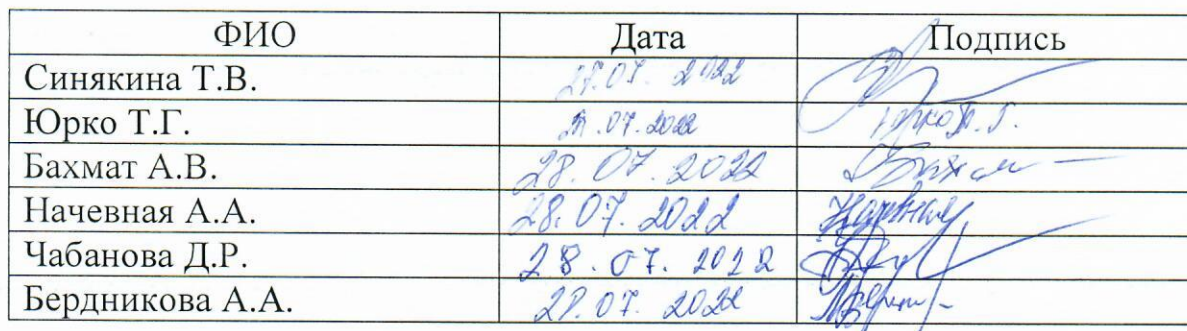 ФИО Дата Подпись
Синякина Т.В. 28.07. 2022
Юрко Т.Г. .07.2022 Юрко Т.Г.
Бахмат А.В. 28.07.2022
Начевная А.А. 28.07.2022
Чабанова Д.Р. 28.07.2022
Бердникова А.А. 28.07.2022